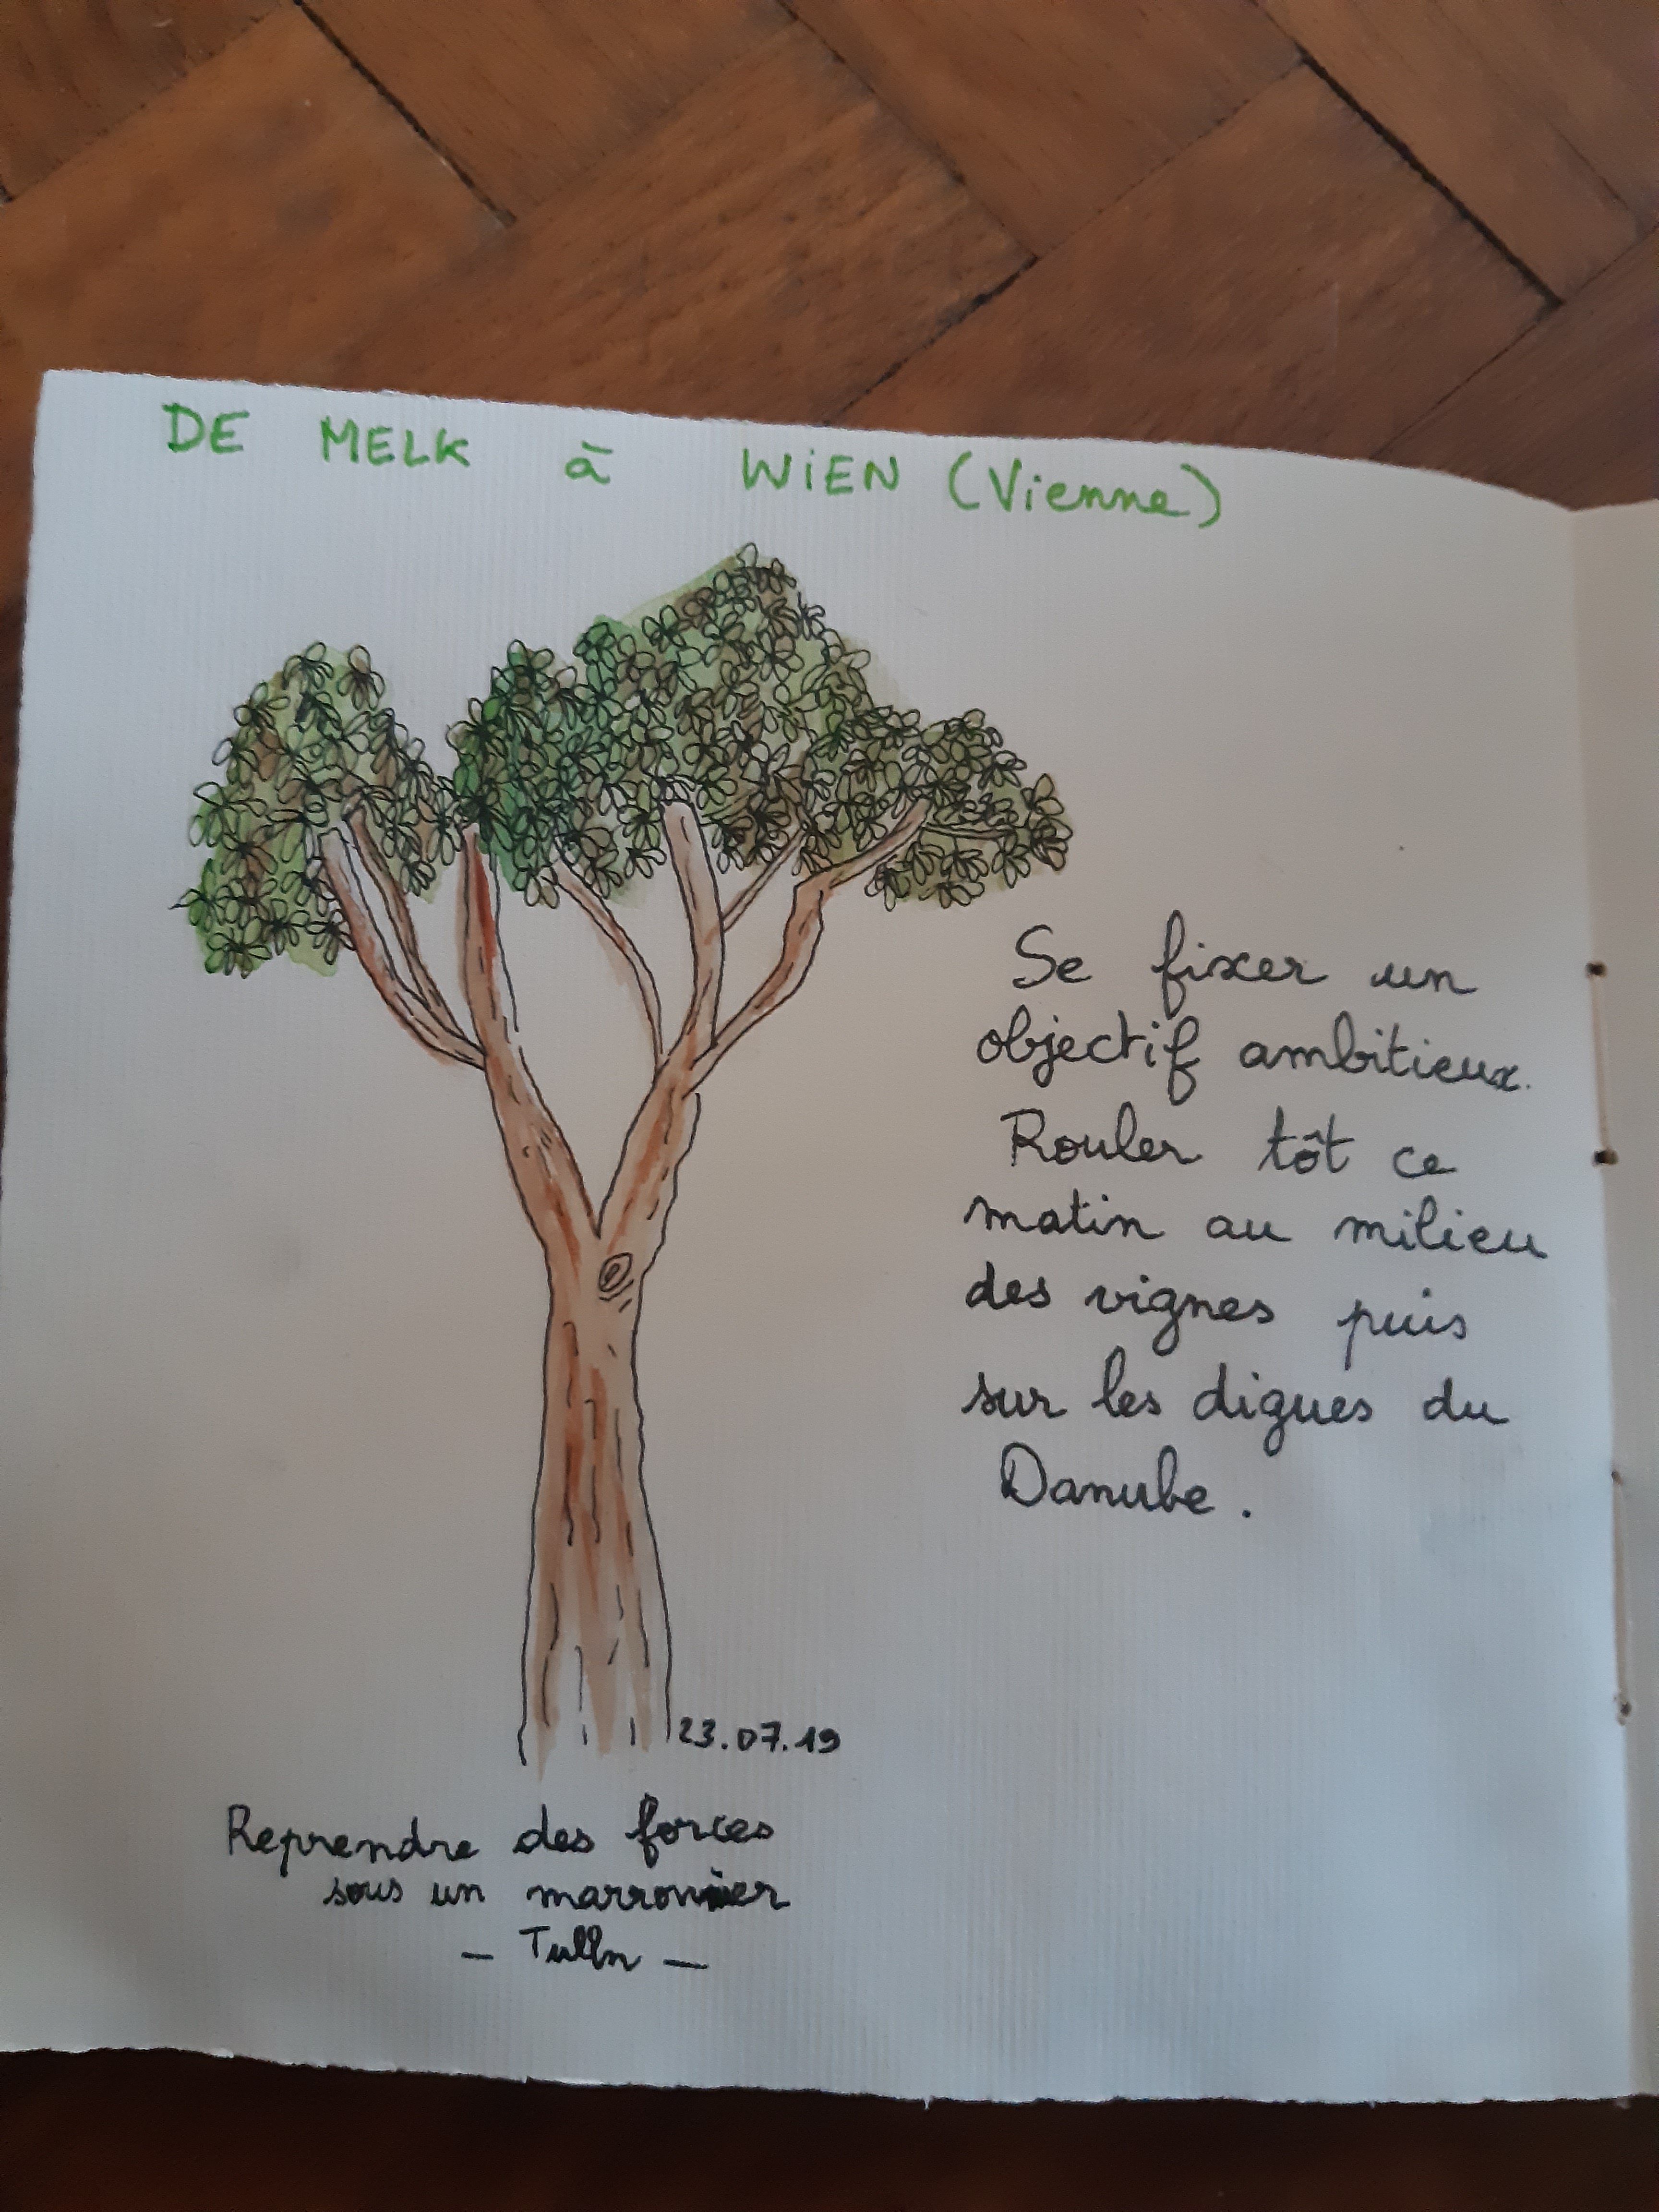 DE MELK à WiEN (Vienne)
Se fixer un
objectif ambitieux.
Rouler tôt ce
matin au milieu
des vignes puis
sur les digues du
Danube.
23.07.19
Reprendre des forces
sous un marronier
- Tulln -